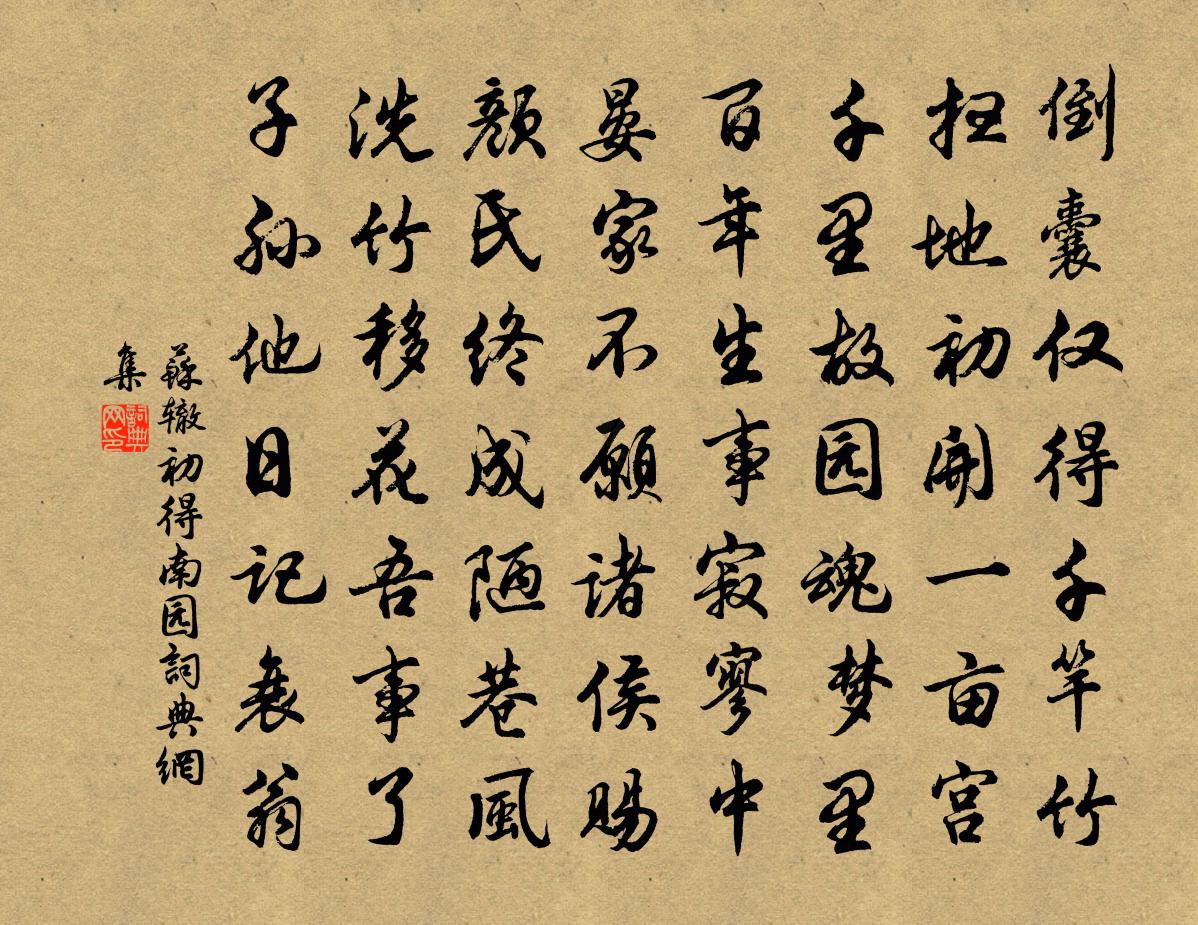 倒囊仅得千竿竹
扫地初開一亩宫
千里故园魂梦里
百年生事寂寥中
晏家不願诸侯赐
颜氏终成陋巷風
洗竹移花吾事了
子孙他日记衰翁
蘇辙初得南园詞典網
集
詞典
网印